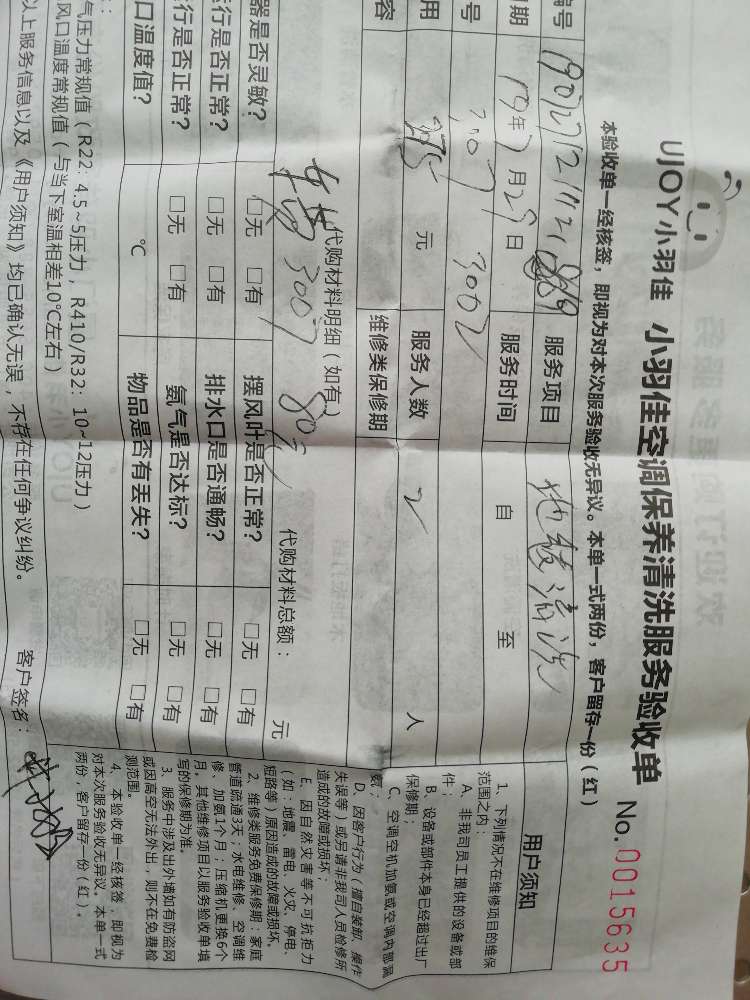 UJOY小羽佳 小羽佳空调保养清洗服务验收单 No. 0015635
本验收单一经核签，即视为对本次服务验收无异议。本单一式两份，客户留存一份（红）
编号 服务项目 地毯清洗
期 19年7月29日 服务时间 自 至
号 3007 3002
用 275 元 服务人数 2 人
容 维修类保修期
代购材料明细（如有） 代购材料总额： 元
3007 80元
器是否灵敏？ □无 □有 摆风叶是否正常？ □无 □有
行是否正常？ □无 □有 排水口是否通畅？ □无 □有
行是否正常？ □无 □有 氨气是否达标？ □无 □有
口温度值？ ℃ 物品是否有丢失？ □无 □有
气压力常规值（R22：4.5~5压力，R410/R32：10~12压力）
风口温度常规值（与当下室温相差10℃左右）
以上服务信息以及《用户须知》均已确认无误，不存在任何争议纠纷。 客户签名：
用户须知
1、下列情况不在维修项目的维保
范围之内：
A、非我司员工提供的设备或部
件；
B、设备或部件本身已经超过出厂
保修期；
C、空调空机加氨或空调内部漏
氨；
D、因客户行为（擅自装卸、操作
失误等）或另请非我司人员检修所
造成的故障或损坏；
E、因自然灾害等不可抗拒力
（如：地震、雷电、火灾、停电、
短路等）原因造成的故障或损坏。
2、维修类服务免费保修期：家庭
管道疏通3天；水电维修、空调维
修、加氨1个月；压缩机更换6个
月。其他维修项目以服务验收单填
写的保修期为准。
3、服务中涉及出外墙如有防盗网
或因高空无法外出，则不在免费检
测范围。
4、本验收单一经核签，即视为
对本次服务验收无异议。本单一式
两份，客户留存一份（红）。